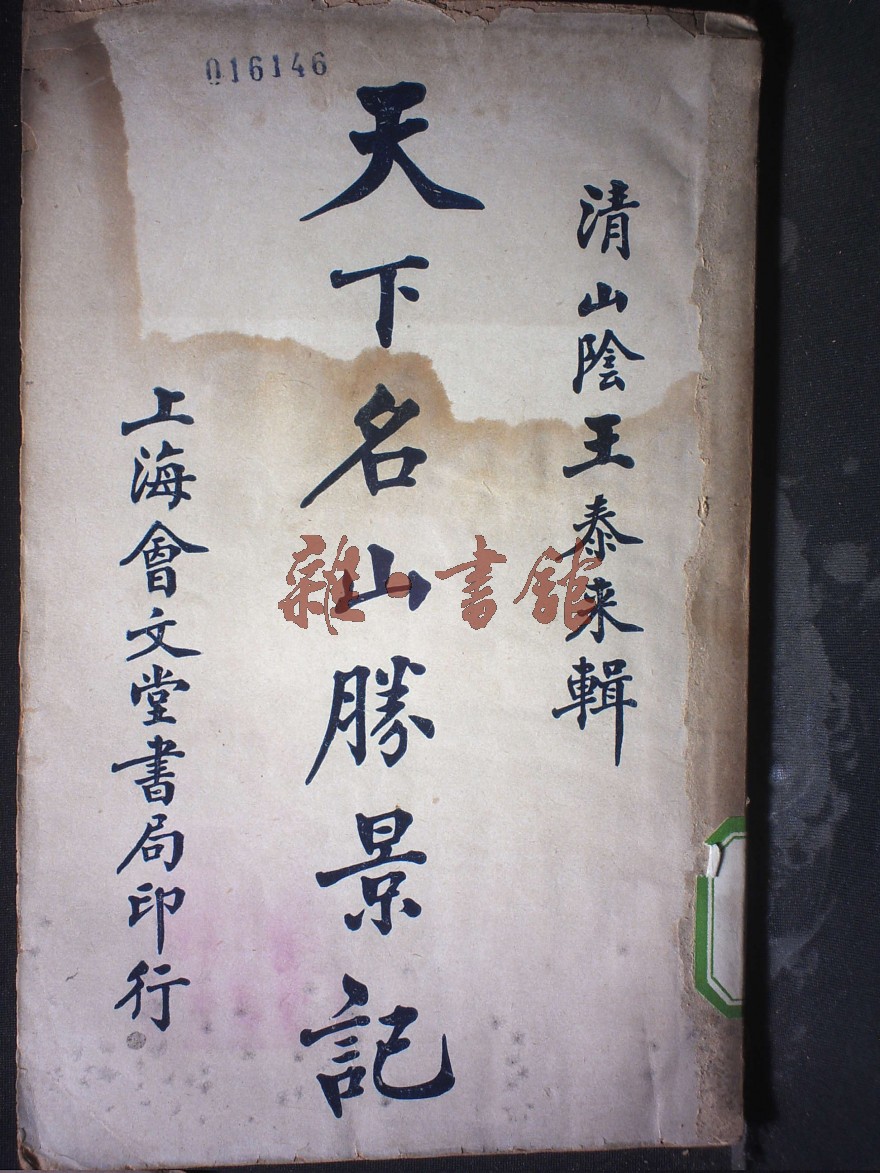 016146
清山陰王泰来輯
天下名山勝景記
上海會文堂書局印行
雜·書館